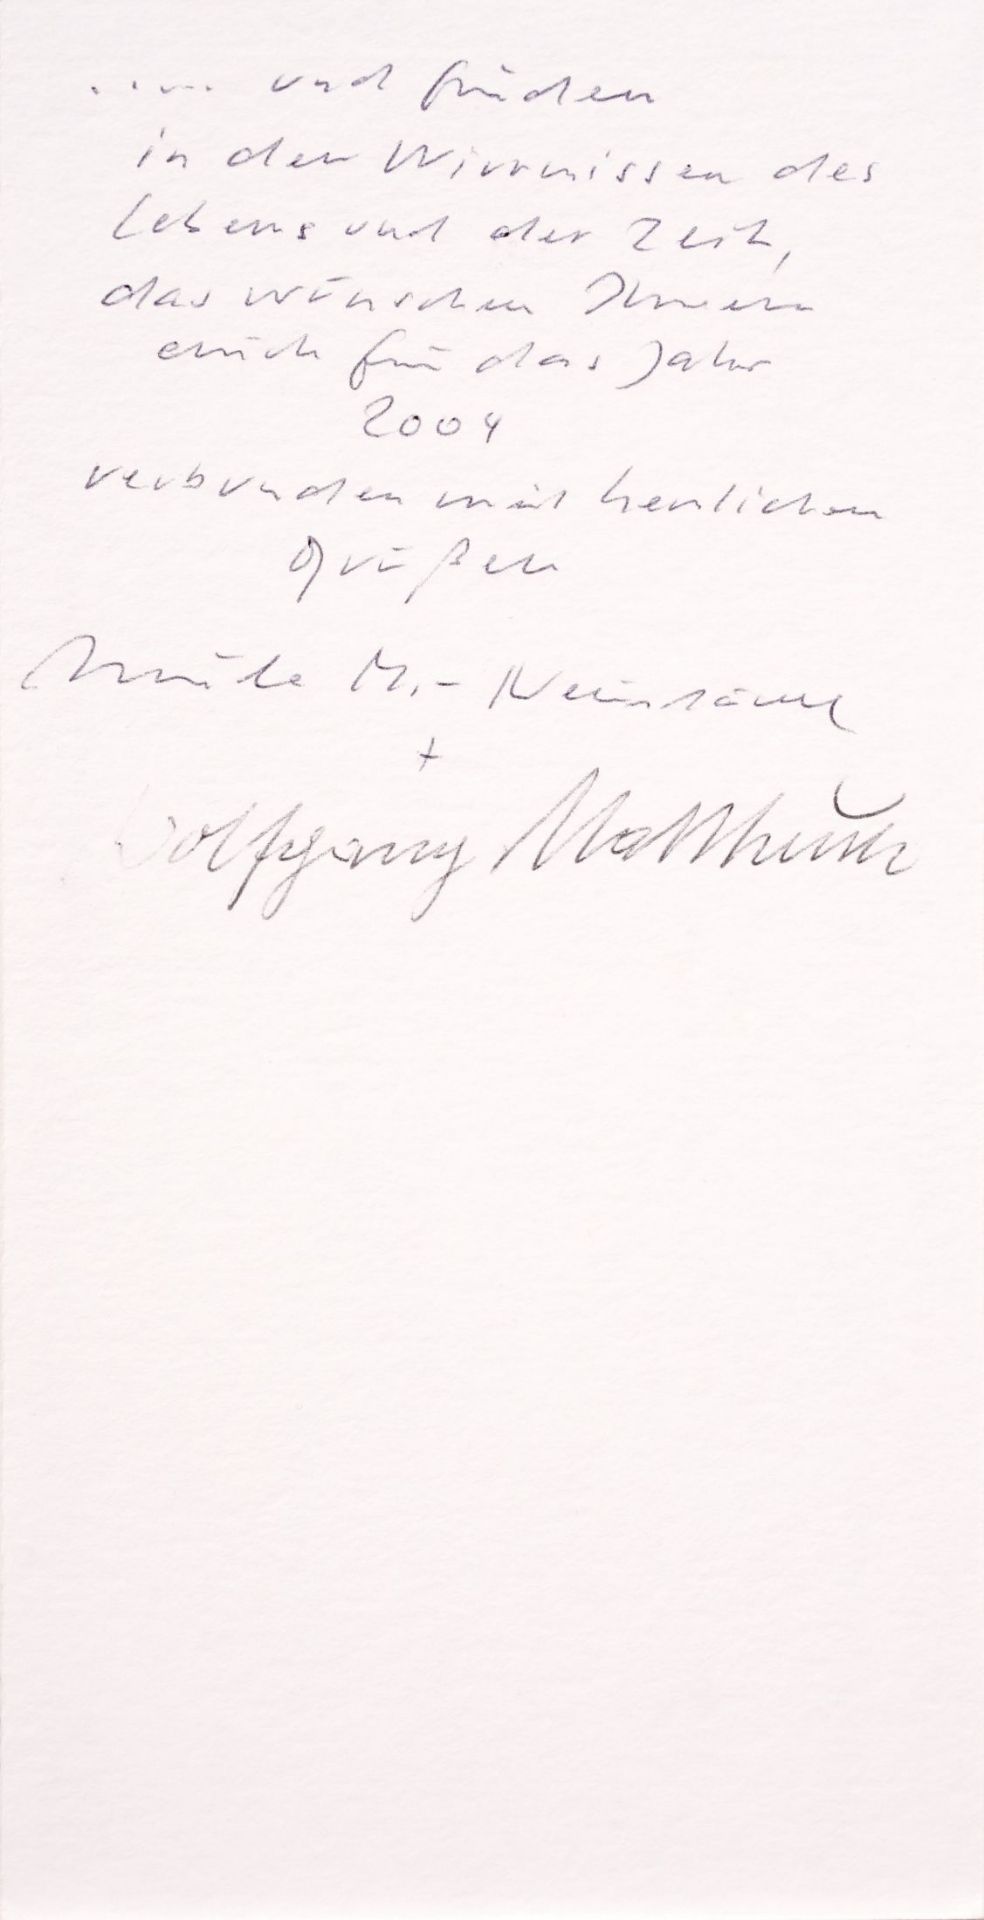 ..... und Frieden
in den Wirrnissen des
Lebens und der Zeit,
das wünschen Ihnen
auch für das Jahr
2004
verbunden mit herzlichen
Grüßen
M.-
+
Wolfgang Mattheuer